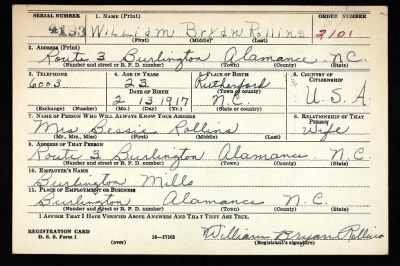 SERIAL NUMBER 1. NAME (Print) ORDER NUMBER
4153 WILLIAM Bryan Rollins 3101
(First) (Middle) (Last)
2. ADDRESS (Print)
Route 3 Burlington Alamance N.C.
(Number and street or R. F. D. number) (Town) (County) (State)
3. TELEPHONE 4. AGE IN YEARS 5. PLACE OF BIRTH 6. COUNTRY OF CITIZENSHIP
6003 23 Rutherford
DATE OF BIRTH (Town or county)
2 13 1917 N.C. U.S.A
(Exchange) (Number) (Mo.) (Day) (Yr.) (State or country)
7. NAME OF PERSON WHO WILL ALWAYS KNOW YOUR ADDRESS 8. RELATIONSHIP OF THAT PERSON
Mrs Bessie Rollins Wife
(Mr., Mrs., Miss) (First) (Middle) (Last)
9. ADDRESS OF THAT PERSON
Route 3 Burlington Alamance N.C.
(Number and street or R. F. D. number) (Town) (County) (State)
10. EMPLOYER'S NAME
Burlington Mills
11. PLACE OF EMPLOYMENT OR BUSINESS
Burlington Alamance N.C.
(Number and street or R. F. D. number) (Town) (County) (State)
I AFFIRM THAT I HAVE VERIFIED ABOVE ANSWERS AND THAT THEY ARE TRUE.
REGISTRATION CARD William Bryan Rollins
D. S. S. Form 1 (over) 16—17105 (Registrant's signature)